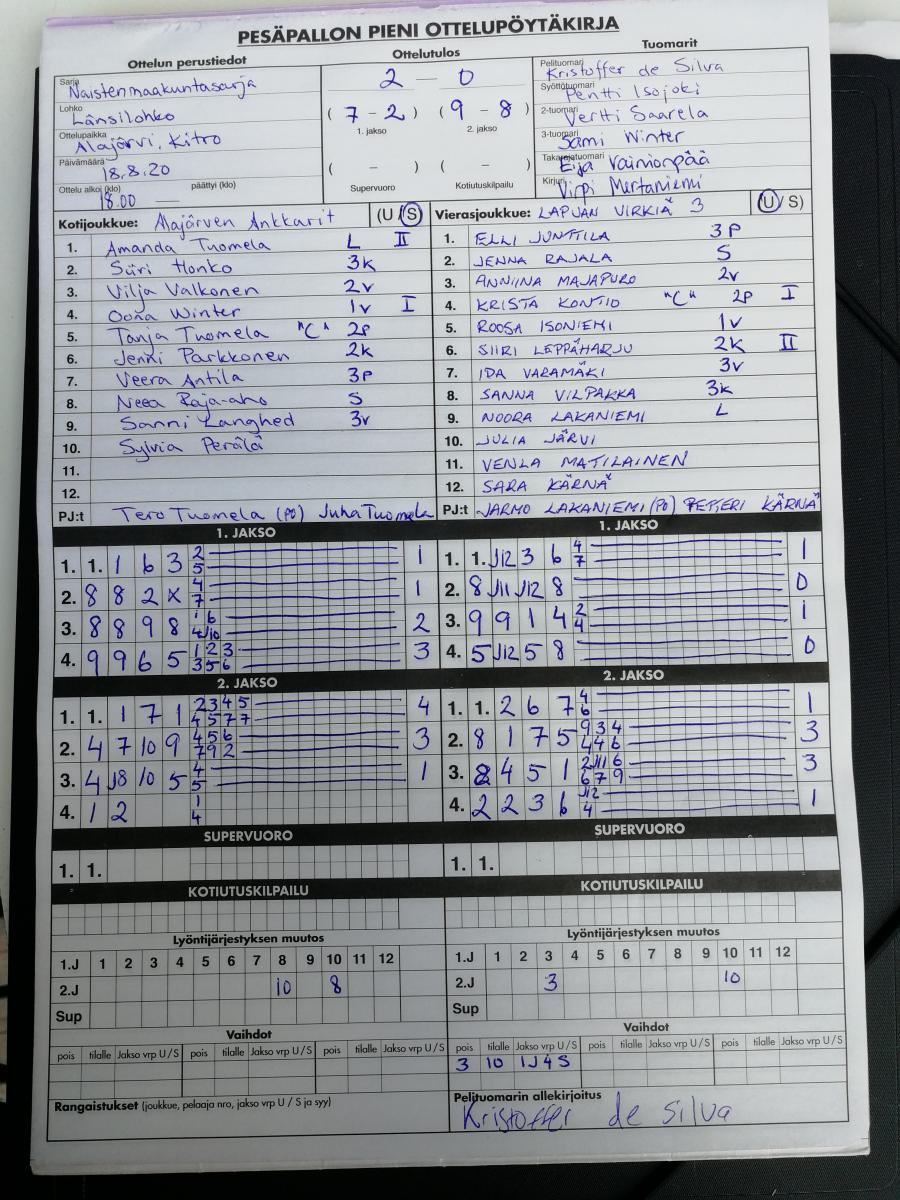 PESÄPALLON PIENI OTTELUPÖYTÄKIRJA
Ottelun perustiedot
Sarja Naisten maakuntasarja
Lohko Länsilohko
Ottelupaikka Alajärvi, Kitro
Päivämäärä 18.8.20
Ottelu alkoi (klo) 18.00 päättyi (klo) —
Ottelutulos
2 – 0
(7 – 2) (9 – 8)
1. jakso 2. jakso
( – ) ( – )
Supervuoro Kotiutuskilpailu
Tuomarit
Pelituomari Kristoffer de Silva
Syöttötuomari Pentti Isojoki
2-tuomari Vertti Saarela
3-tuomari Sami Winter
Takarajatuomari Eija Vainionpää
Kirjuri Virpi Mertaniemi
Kotijoukkue: Alajärven Ankkurit (U / S)
1. Amanda Tuomela L II
2. Siiri Honko 3k
3. Vilja Valkonen 2v
4. Oona Winter 1v I
5. Tanja Tuomela "C" 2p
6. Jenni Parkkonen 2k
7. Veera Antila 3p
8. Neea Raja-aho S
9. Sanni Langhed 3v
10. Sylvia Perälä
11.
12.
PJ:t Tero Tuomela (PO) Juha Tuomela
Vierasjoukkue: LAPUAN VIRKIÄ 3 (U / S)
1. ELLI JUNTTILA 3P
2. JENNA RAJALA S
3. ANNIINA MAJAPURO 2v
4. KRISTA KONTIO "C" 2P I
5. ROOSA ISONIEMI 1v
6. SIIRI LEPPÄHARJU 2K II
7. IDA VARAMÄKI 3v
8. SANNA VILPAKKA 3k
9. NOORA LAKANIEMI L
10. JULIA JÄRVI
11. VENLA MATILAINEN
12. SARA KÄRNÄ
PJ:t JARMO LAKANIEMI (PO) PETTERI KÄRNÄ
1. JAKSO
1. 1. 1 6 3 2 5 1
2. 8 8 2 X 4 7 1
3. 8 8 9 8 1 6 4 J10 2
4. 9 9 6 5 1 2 3 3 5 6 3
1. JAKSO
1. 1. J12 3 6 4 7 1
2. 8 J11 J12 8 0
3. 9 9 1 4 2 4 1
4. 5 J12 5 8 0
2. JAKSO
1. 1. 1 7 1 2 3 4 5 4 5 7 7 4
2. 4 7 10 9 4 5 6 7 9 2 3
3. 4 J8 10 5 4 5 1
4. 1 2 1 4
2. JAKSO
1. 1. 2 6 7 4 6 1
2. 8 1 7 5 9 3 4 4 4 6 3
3. 2 4 5 1 2 J11 6 6 7 9 3
4. 2 2 3 6 J12 4 1
SUPERVUORO
1. 1.
SUPERVUORO
1. 1.
KOTIUTUSKILPAILU
KOTIUTUSKILPAILU
Lyöntijärjestyksen muutos
1.J 1 2 3 4 5 6 7 8 9 10 11 12
2.J 10 8
Sup
Lyöntijärjestyksen muutos
1.J 1 2 3 4 5 6 7 8 9 10 11 12
2.J 3 10
Sup
Vaihdot
pois tilalle Jakso vrp U / S pois tilalle Jakso vrp U / S pois tilalle Jakso vrp U / S
Vaihdot
pois tilalle Jakso vrp U / S pois tilalle Jakso vrp U / S pois tilalle Jakso vrp U / S
3 10 1J4S
Rangaistukset (joukkue, pelaaja nro, jakso vrp U / S ja syy)
Pelituomarin allekirjoitus
Kristoffer de Silva